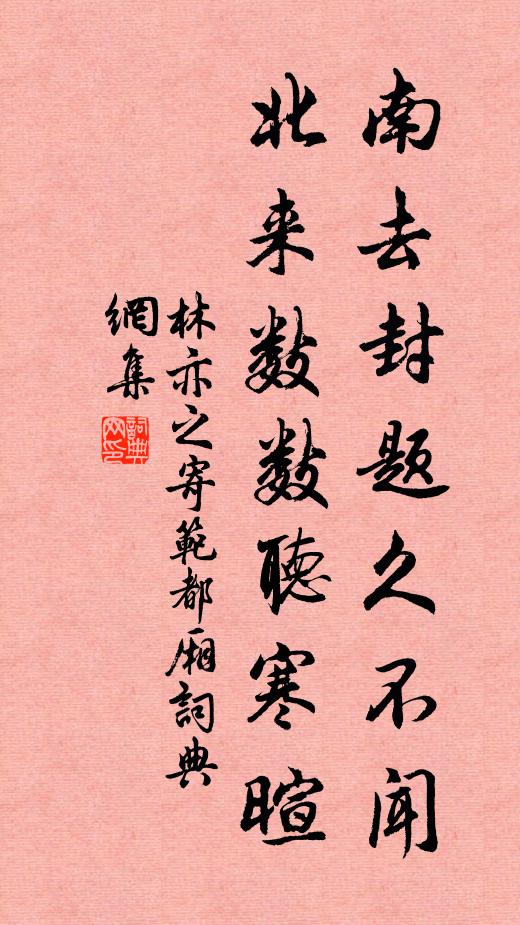 南去封题久不闻
北来数数聽寒暄
林亦之寄範都厢詞典
網集
詞典网印